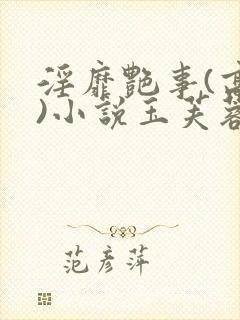 淫靡艷事(高
)小說玉芙蓉
范彥萍